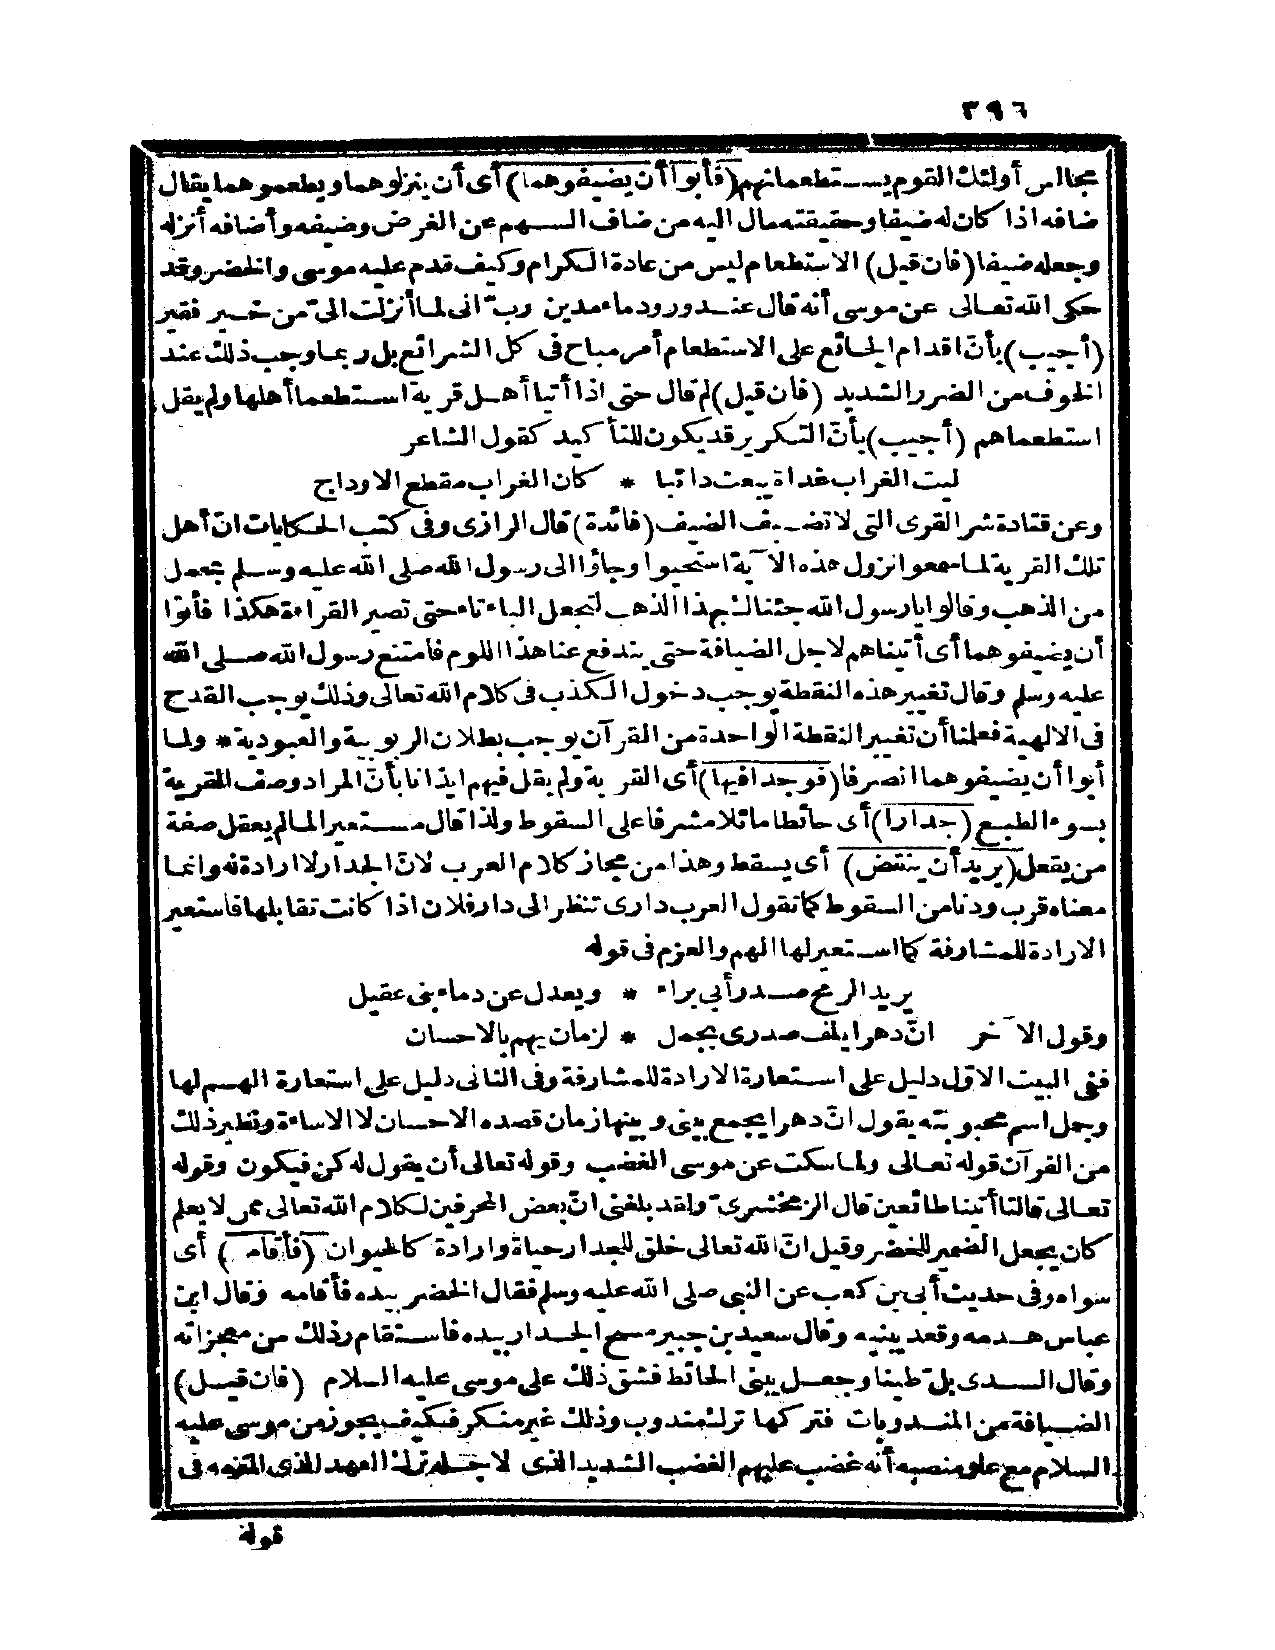 ٣٩٦
مجالس أولئك القوم يستطعمانهم (فأبوا أن يضيفوهما) أى أن ينزلوهما ويطعموهما يقال
ضافه اذا كان له ضيفا وحقيقته مال اليه من ضاف السهم عن الغرض وضيفه وأضافه أنزله
وجعله ضيفا (فان قيل) الاستطعام ليس من عادة الكرام وكيف قدم عليه موسى والخضر وقد
حكى الله تعالى عن موسى أنه قال عند ورود ماء مدين رب انى لما أنزلت الىّ من خير فقير
(أجيب) بأنّ اقدام الجائع على الاستطعام أمر مباح فى كل الشرائع بل ربما وجب ذلك عند
الخوف من الضرر الشديد (فان قيل) لم قال حتى اذا أتيا أهل قرية استطعما أهلها ولم يقل
استطعماهم (أجيب) بأنّ التكرير قد يكون للتأكيد كقول الشاعر
ليت الغراب غداة ينعب دائبا * كان الغراب مقطع الاوداج
وعن قتادة شر القرى التى لا تضيف الضيف (فائدة) قال الرازى وفى كتب الحكايات انّ أهل
تلك القرية لما سمعوا نزول هذه الآية استحيوا وجاؤا الى رسول الله صلى الله عليه وسلم بحمل
من الذهب وقالوا يا رسول الله جئناك بهذا الذهب لتجعل الباء تاء حتى تصير القراءة هكذا فأتوا
أن يضيفوهما أى أتيناهم لاجل الضيافة حتى يندفع عنا هذا اللوم فامتنع رسول الله صلى الله
عليه وسلم وقال تغيير هذه النقطة يوجب دخول الكذب فى كلام الله تعالى وذلك يوجب القدح
فى الالهية فعلمنا أن تغيير النقطة الواحدة من القرآن يوجب بطلان الربوبية والعبودية * ولما
أبوا أن يضيفوهما انصرفا (فوجدا فيها) أى القرية ولم يقل فيهم ايذانا بأنّ المراد وصف القرية
بسوء الطبع (جدارا) أى حائطا مائلا مشرفا على السقوط ولذا قال مستعيرا لما لم يعقل صفة
من يعقل (يريد أن ينقض) أى يسقط وهذا من مجاز كلام العرب لانّ الجدار لا ارادة له وانما
معناه قرب ودنا من السقوط كما تقول العرب دارى تنظر الى دار فلان اذا كانت تقابلها فاستعير
الارادة للمشارفة كما استعير لها الهم والعزم فى قوله
يريد الرمح صدر أبى براء * ويعدل عن دماء بنى عقيل
وقول الآخر انّ دهرا يلف صدرى بجمل * لزمان يهم بالاحسان
ففى البيت الاوّل دليل على استعارة الارادة للمشارفة وفى الثانى دليل على استعارة الهم لها
وجمل اسم محبوبته يقول انّ دهرا يجمع بينى وبينها زمان قصده الاحسان لا الاساءة ونظير ذلك
من القرآن قوله تعالى ولما سكت عن موسى الغضب وقوله تعالى أن يقول له كن فيكون وقوله
تعالى قالتا أتينا طائعين قال الزمخشرىّ ولقد بلغنى انّ بعض المحرفين لكلام الله تعالى ممن لا يعلم
كان يجعل الضمير للخضر وقيل انّ الله تعالى خلق للجدار حياة وارادة كالحيوان (فأقامه) أى
سواه وفى حديث أبى بن كعب عن النبى صلى الله عليه وسلم فقال الخضر بيده فأقامه وقال ابن
عباس هدمه وقعد يبنيه وقال سعيد بن جبير مسح الجدار بيده فاستقام وذلك من معجزاته
وقال السدى بلّ طينا وجعل يبنى الحائط فشق ذلك على موسى عليه السلام (فان قيل)
الضيافة من المندوبات فتركها ترك مندوب وذلك غير منكر فكيف يجوز من موسى عليه
السلام مع علو منصبه أنه غضب عليهم الغضب الشديد الذى لاجله ترك العهد الذى التزمه فى
قوله